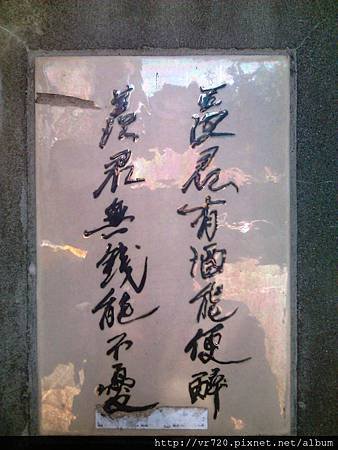 羨君有酒能便醉
羨君無錢能不憂
http://vr720.pixnet.net/album